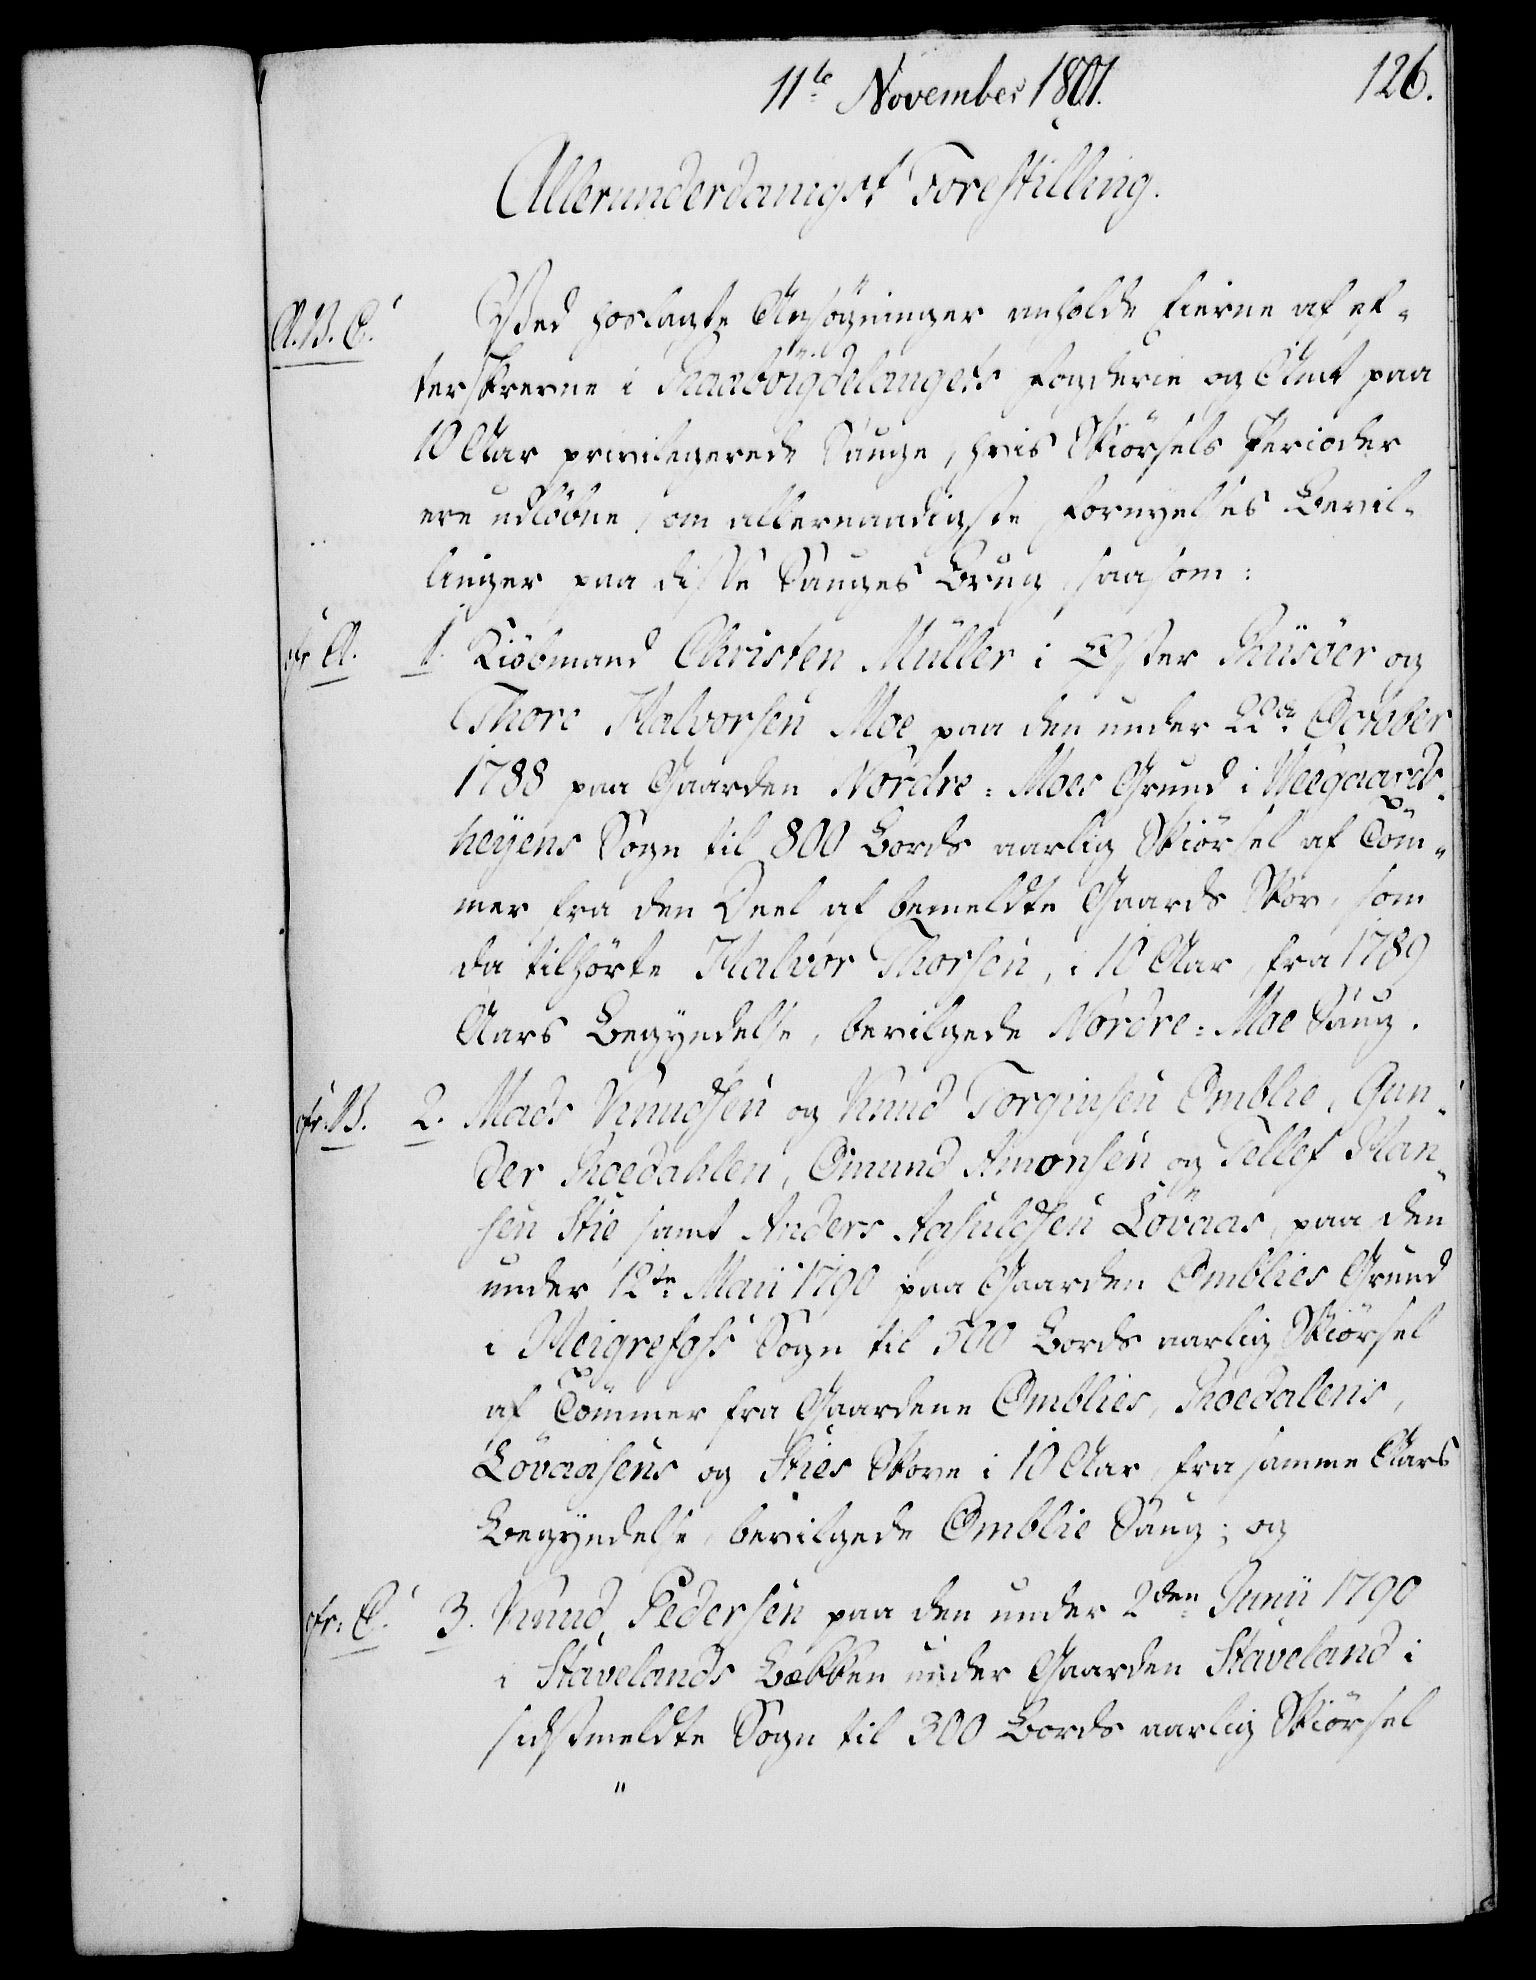 11te November 1801.
126.
Allerunderdanigst Forestilling.
A. B. C.
Ved hoslagte Ansøgninger anholde Eierne af ef-
terskrevne i Raabøigdelaugets Fogderie og Amt paa
10 Aar privilegerede Sauge, hvis Skiørsels Perioder
ere udløbne, om allernaadigste Fornyelses Bevil-
linger paa disse Sauges Brug, saasom:
cfr. A. 1. Kiøbmand Christen Müller i Øster Riisöer og
Thore Halvorsen Moe paa den under 22de October
1788 paa Gaarden Nordre-Moes Grund i Weegaards-
heyens Sogn til 800 Bords aarlig Skiörsel af Töm-
mer fra den Deel af bemeldte Gaards Skov, som
da tilhörte Halvor Thorsen, i 10 Aar, fra 1789
Aars Begyndelse, bevilgede Nordre-Moe Saug.
cfr. B. 2. Mads Knudsen og Knud Torginsen Omblie, Gun-
der Roedahlen, Omund Amonsen og Tellef Han-
sen Stie samt Anders Aasuldsen Lövaas, paa den
under 12te Maii 1790 paa Gaarden Omblies Grund
i Heigrefoss Sogn til 500 Bords aarlig Skiörsel
af Tömmer fra Gaardene Omblies, Roedalens,
Lövaasens og Sties Skove i 10 Aar, fra samme Aars
Begyndelse, bevilgede Omblie Saug; og
cfr. C. 3. Knud Pedersen paa den under 2den Junii 1790
i Stavelands Bækken under Gaarden Staveland i
sidstmeldte Sogn til 300 Bords aarlig Skiörsel
"